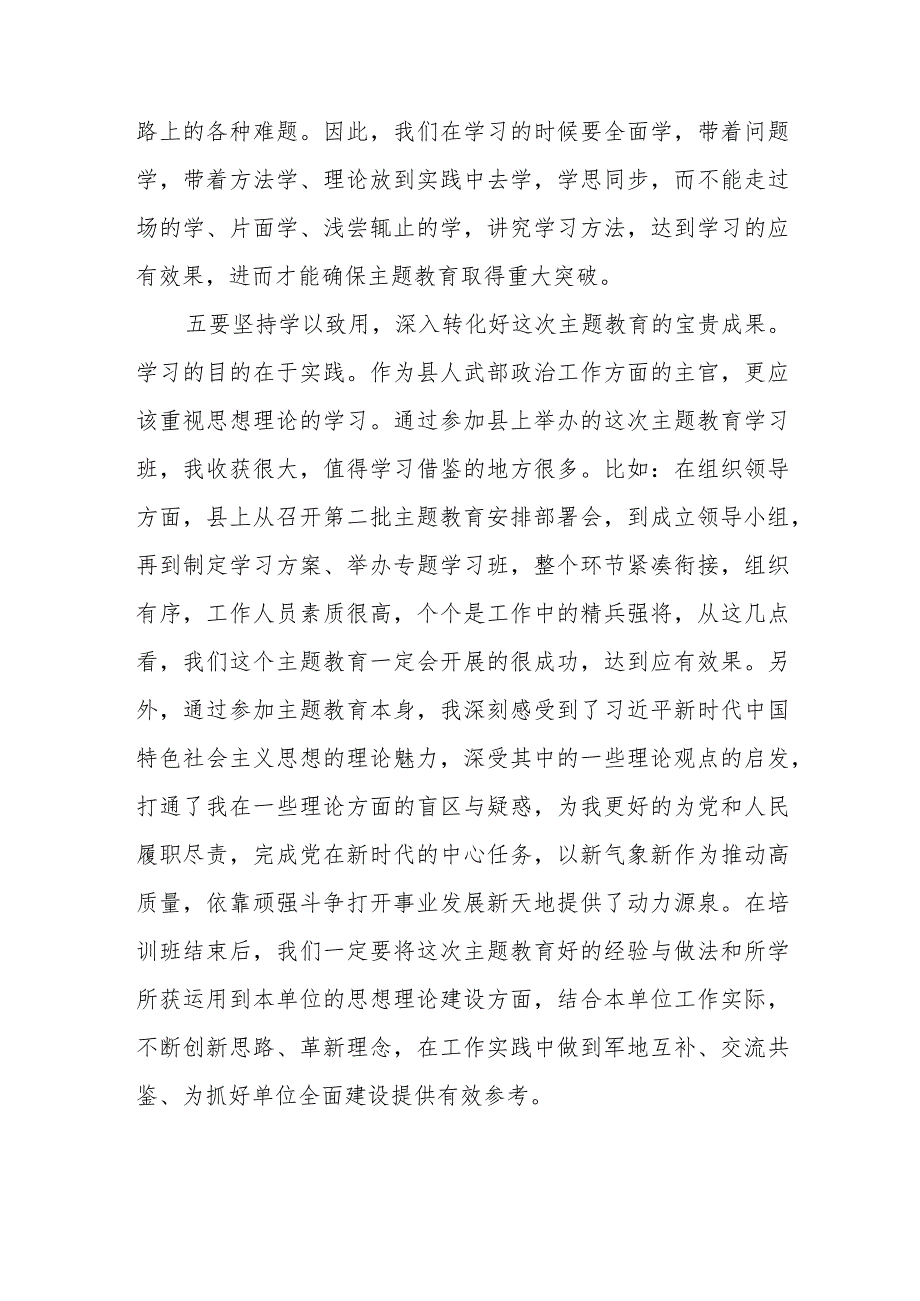 路上的各种难题。因此，我们在学习的时候要全面学，带着问题
学，带着方法学、理论放到实践中去学，学思同步，而不能走过
场的学、片面学、浅尝辄止的学，讲究学习方法，达到学习的应
有效果，进而才能确保主题教育取得重大突破。
五要坚持学以致用，深入转化好这次主题教育的宝贵成果。
学习的目的在于实践。作为县人武部政治工作方面的主官，更应
该重视思想理论的学习。通过参加县上举办的这次主题教育学习
班，我收获很大，值得学习借鉴的地方很多。比如：在组织领导
方面，县上从召开第二批主题教育安排部署会，到成立领导小组，
再到制定学习方案、举办专题学习班，整个环节紧凑衔接，组织
有序，工作人员素质很高，个个是工作中的精兵强将，从这几点
看，我们这个主题教育一定会开展的很成功，达到应有效果。另
外，通过参加主题教育本身，我深刻感受到了习近平新时代中国
特色社会主义思想的理论魅力，深受其中的一些理论观点的启发，
打通了我在一些理论方面的盲区与疑惑，为我更好的为党和人民
履职尽责，完成党在新时代的中心任务，以新气象新作为推动高
质量，依靠顽强斗争打开事业发展新天地提供了动力源泉。在培
训班结束后，我们一定要将这次主题教育好的经验与做法和所学
所获运用到本单位的思想理论建设方面，结合本单位工作实际，
不断创新思路、革新理念，在工作实践中做到军地互补、交流共
鉴、为抓好单位全面建设提供有效参考。